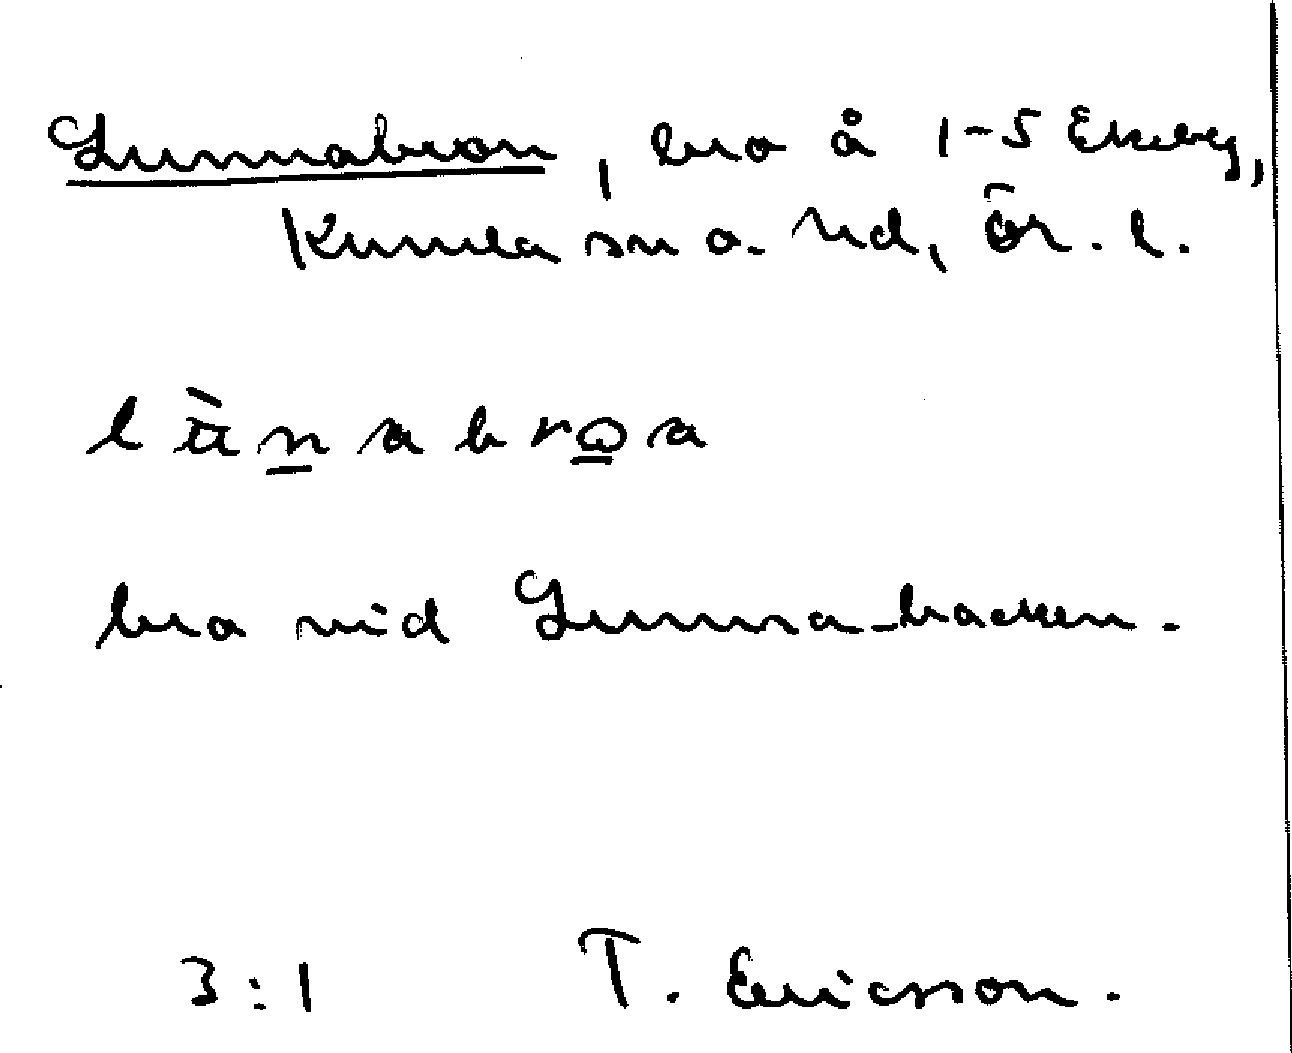 Lunnabron, bro å 1-5 Ekeby,
Kumla sn o. hd, Ör. l.
lu̇̀nabroa
bro vid Lunna-backen.
3:1 T. Ericsson.